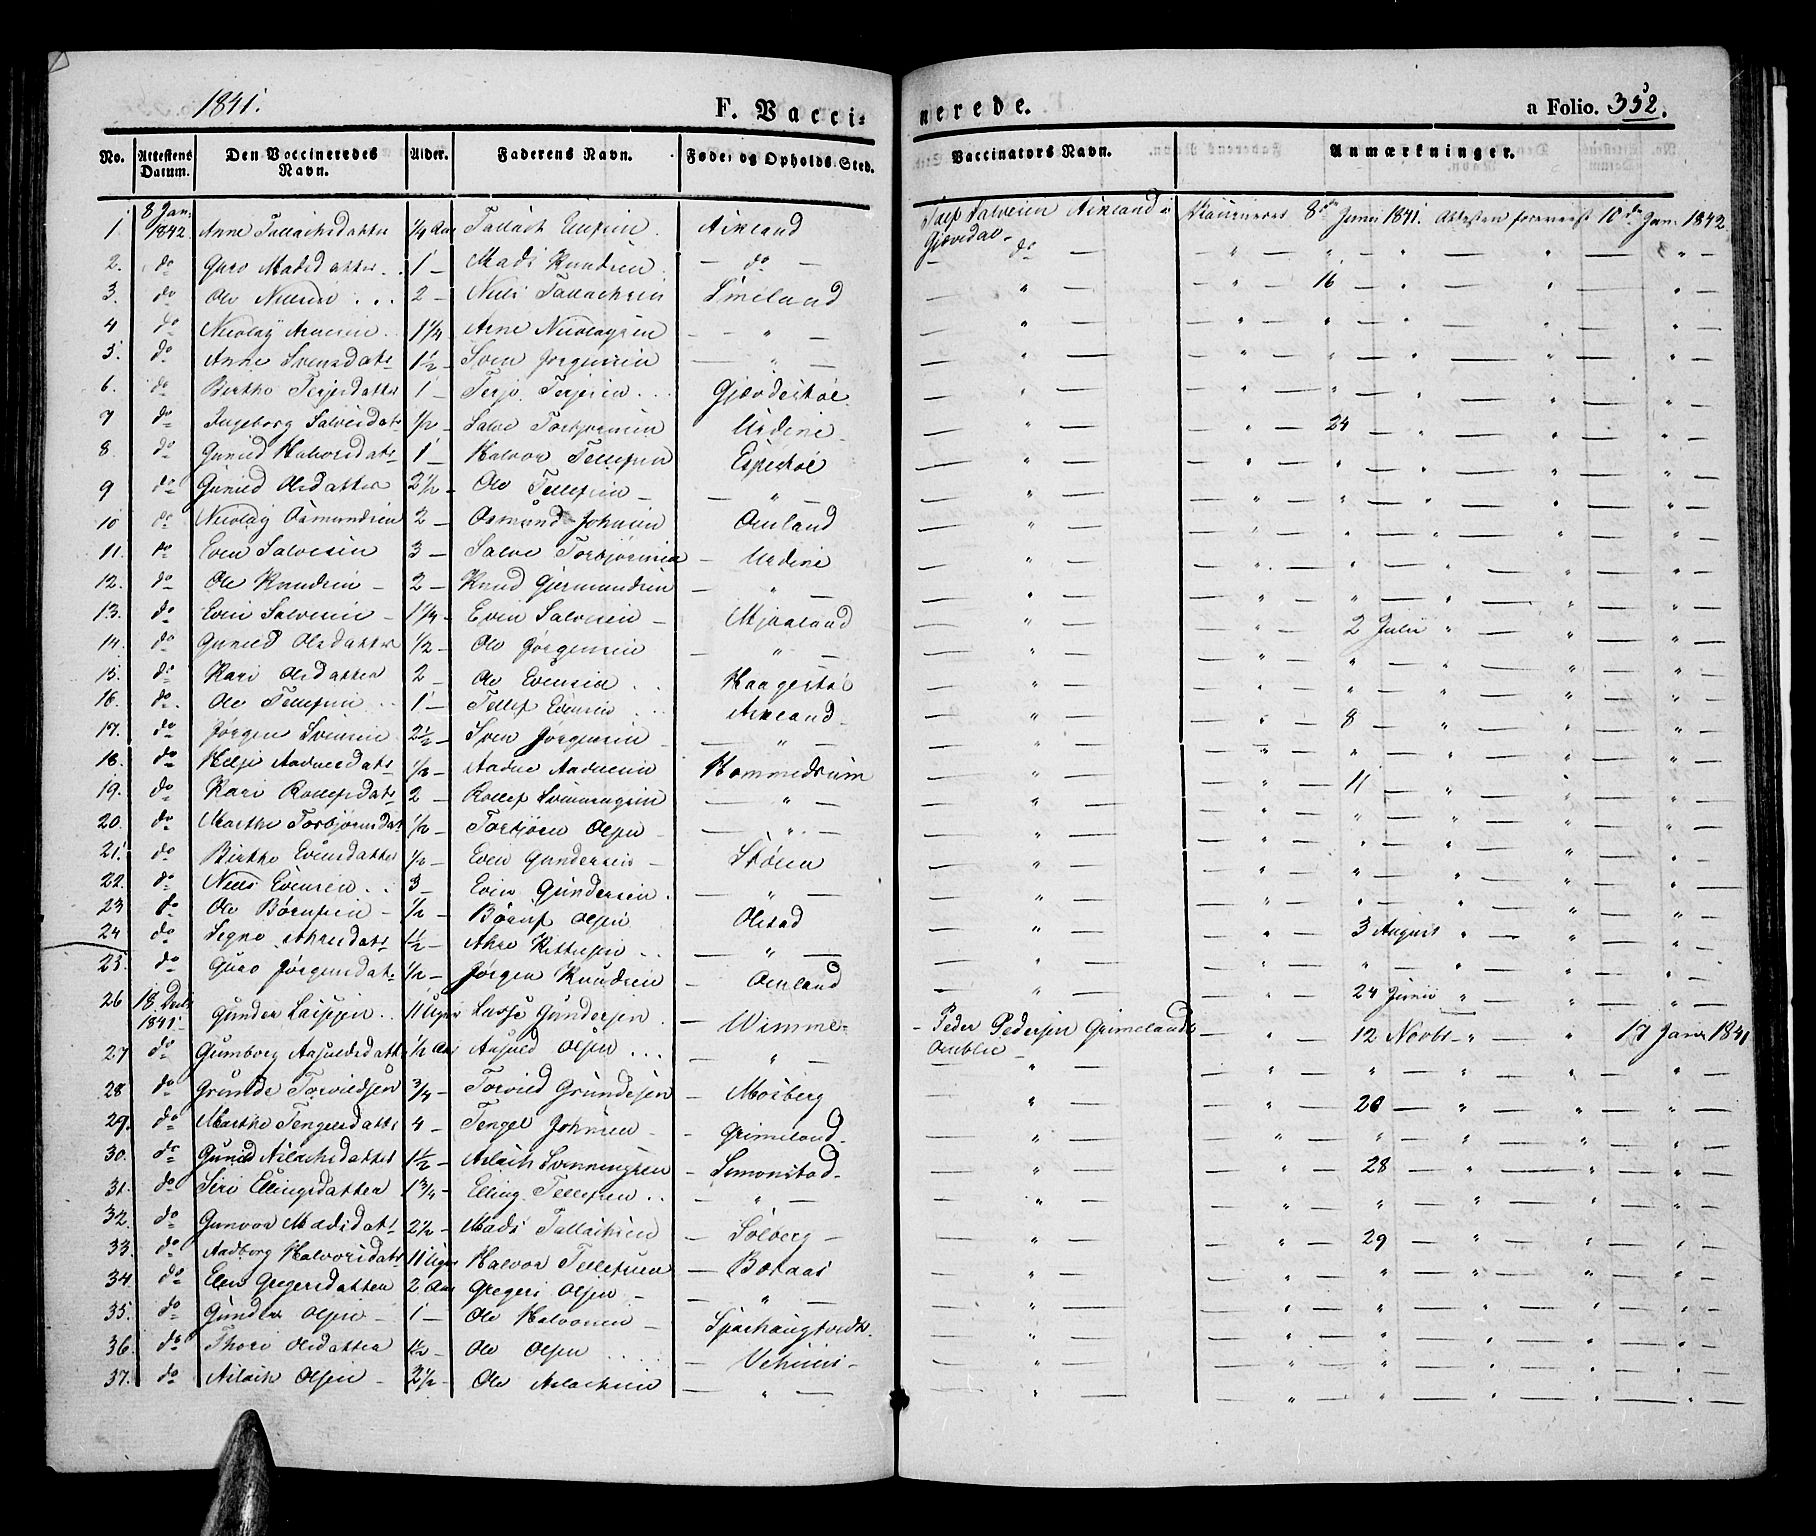 1841.
F. Vacci-
nerede.
a Folio. 352.
No. Attestens Datum. Den Vaccineredes Navn. Alder. Faderens Navn. Føde- og Opholds-Sted. Vaccinators Navn. Anmærkninger.
1. 8 Jan: 1842. Anne Tallachsdatter 1/4 Aar Tallach Aasland Salvesen i Gjøvedal Vaccineret 8de Junii 1841. Attesten 10de Jan: 1842
2. do Guro Madsdatter 1 — Mads Knudsen — do — — do —
3. do Ole Nielsen 2 — Niels Tallachsen Smeland — " — 16 — "
4 do Nicolay Arnesen 1 1/4 Arne Nicolaysen — " —
5. do Anne Svensdatr 1 1/2 — Sven Jørgensen — " —
6. do Birthe Terjesdatter 1 — Terje Terjesen Gjøvdestøl
7 do Ingeborg Salvesdatr 1/2 — Salve Torbjørnsen Urdene — " — 24 — "
8. do Gunild Halvorsdatr 1 — Halvor Tellefsen Espestøl
9 do Gunild Olsdatter 2 1/2 — Ole Tellefsen — " —
10 do Nicolay Osmundsen 2 — Osmund Johnsen Omland
11. do Even Salvesen 3 — Salve Torbjørnsen — Urdene
12. do Ole Knudsen — 2 — Knud Gjermundsen — " —
13. do Even Salvesen — 1 1/4 — Even Salvesen — Mjaaland — " — 2 Julii "
14. do Gunild Olsdatter 1/2 — Ole Jørgensen — " —
15. do Kari Olsdatter 2 — Ole Evensen Haagestøl
16. do Ole Tellefsen 1 — Tellef Evensen Aasland — " — 8 — "
17. do Jørgen Svensen 2 1/2 — Sven Jørgensen — " —
18. do Helje Aadnesdatr 1/2 — Aadne Aadnesen Hommedrum — " — 11 — "
19. do Kari Rollefsdatr 2 — Rollef Svenningsen — " —
20. do Marthe Torbjørnsdatr 1/2 — Torbjørn Olsen — " —
21. do Birthe Evensdatter 1/2 — Even Gundersen — Støen
22. do Niels Evensen 3 — Even Gundersen — " —
23 do Ole Børufsen — 1/2 — Børuf Olsen Olstad — " — 3 August "
24 do Signe Akresdatr 1 1/2 — Akre Kittelsen — " —
25. do Guro Jørgensdatr 1/2 — Jørgen Knudsen — Omland — " — 24 Junii "
26 18 Decbr 1841. Gunder Lassesen 11 Uger Lasse Gundersen — Wimme — Peder Pedersen Grimeland — " — 12 Novbr — " 17 Jan: 1841
27 do Gumborg Asuldsdatr 1/2 Aar Asuld Olsen — " —
28 do Grunde Torvildsen 3/4 — Torvild Grundesen — Mosberg — " — 20 — "
29. do Marthe Tengelsdatr 4 — Tengel Johnsen — Grimeland
30. do Gunild Aslachsdatter 1 1/2 — Aslach Svenningsen — Simonstad — " — 28 — "
31. do Siri Ellingsdatter 1 3/4 — Elling Tellefsen — " —
32. do Gunvor Madsdatr 2 1/2 — Mads Tallachsen — Solberg — " — 29 — "
33. do Aadborg Halvorsdatr 11 Uger Halvor Tellefsen — Boraas
34. do Elen Gregersdatter 2 Aar Gregers Olsen — " —
35. do Gunder Olsen — 1 — Ole Halvorsen — Sparhaugtvedt
36. do Thore Olsdatter 1 1/2 — Ole Olsen — Vehuus
37. do Aslach Olsen — 2 1/2 — Ole Aslachsen — " —